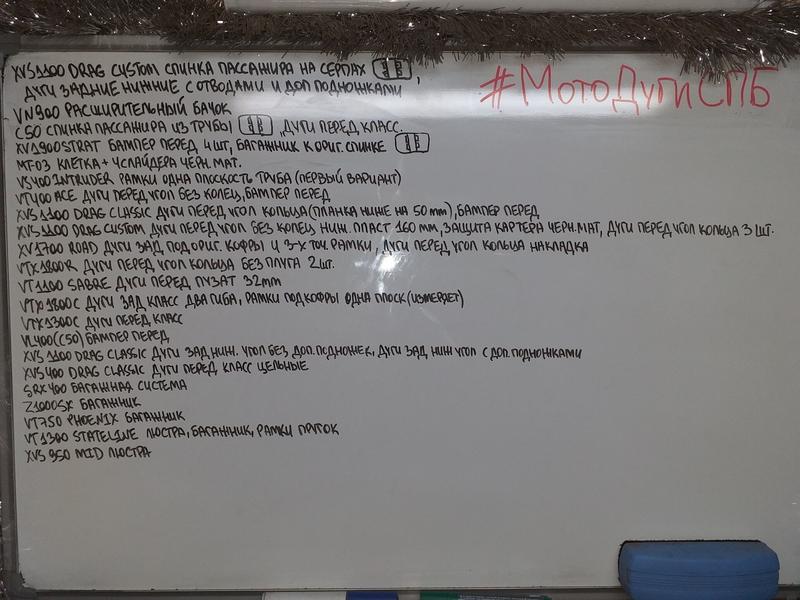 XVS1100 DRAG CUSTOM СПИНКА ПАССАЖИРА НА СЕРПАХ ,
ДУГИ ЗАДНИЕ НИЖНИЕ С ОТВОДАМИ И ДОП ПОДНОЖКАМИ
#МотоДугиСПБ
VN900 РАСШИРИТЕЛЬНЫЙ БАЧОК
C50 СПИНКА ПАССАЖИРА ИЗ ТРУБЫ , ДУГИ ПЕРЕД КЛАСС.
XV1900STRAT БАМПЕР ПЕРЕД 4 ШТ, БАГАЖНИК К ОРИГ. СПИНКЕ
MT-03 КЛЕТКА + 4СЛАЙДЕРА ЧЕРН. МАТ.
VS400INTRUDER РАМКИ ОДНА ПЛОСКОСТЬ ТРУБА (ПЕРВЫЙ ВАРИАНТ)
VT400 ACE ДУГИ ПЕРЕД УГОЛ БЕЗ КОЛЕЦ, БАМПЕР ПЕРЕД
XVS1100 DRAG CLASSIC ДУГИ ПЕРЕД УГОЛ КОЛЬЦА (ПЛАНКА НИЖЕ НА 50 mm), БАМПЕР ПЕРЕД
XVS1100 DRAG CUSTOM ДУГИ ПЕРЕД УГОЛ БЕЗ КОЛЕЦ НИЖ. ПЛАСТ 160 mm, ЗАЩИТА КАРТЕРА ЧЕРН. МАТ, ДУГИ ПЕРЕД УГОЛ КОЛЬЦА 3 ШТ.
XV1700 ROAD ДУГИ ЗАД ПОД ОРИГ. КОФРЫ И 3-Х ТОЧ. РАМКИ, ДУГИ ПЕРЕД УГОЛ КОЛЬЦА НАКЛАДКА
VTX1800R ДУГИ ПЕРЕД УГОЛ КОЛЬЦА БЕЗ ПЛУГА 2 ШТ.
VT1100 SABRE ДУГИ ПЕРЕД ПУЗАТ 32mm
VTX1800C ДУГИ ЗАД КЛАСС ДВА ГИБА, РАМКИ ПОД КОФРЫ ОДНА ПЛОСК (ИЗМЕРЯЕТ)
VTX1300C ДУГИ ПЕРЕД КЛАСС
VL400 (C50) БАМПЕР ПЕРЕД
XVS1100 DRAG CLASSIC ДУГИ ЗАД НИЖ. УГОЛ БЕЗ ДОП. ПОДНОЖЕК, ДУГИ ЗАД НИЖ УГОЛ С ДОП. ПОДНОЖКАМИ
XVS400 DRAG CLASSIC ДУГИ ПЕРЕД КЛАСС ЦЕЛЬНЫЕ
SRX400 БАГАЖНАЯ СИСТЕМА
Z1000SX БАГАЖНИК
VT750 PHOENIX БАГАЖНИК
VT1300 STATELINE ЛЮСТРА, БАГАЖНИК, РАМКИ ПРУТОК
XVS950 MID ЛЮСТРА